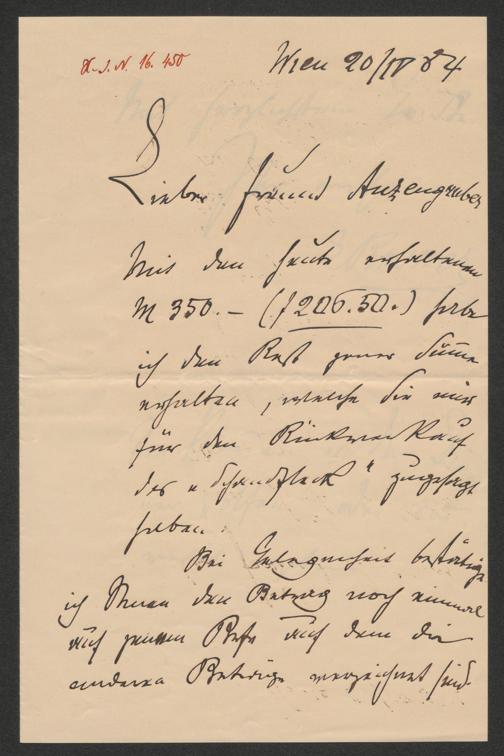 H.I.N. 16.450
Wien 20/IV 84
Lieber Freund Anzengruber
Mit den heute erhaltenen
M 350.– (f 206.50.) habe
ich den Rest jener Summe
erhalten, welche Sie mir
für den Rückverkauf
des „Schandfleck“ zugesagt
haben.
Bei Gelegenheit bestätige
ich Ihnen den Betrag noch einmal
auf jenem auf dem die
anderen Beträge verzeichnet sind.